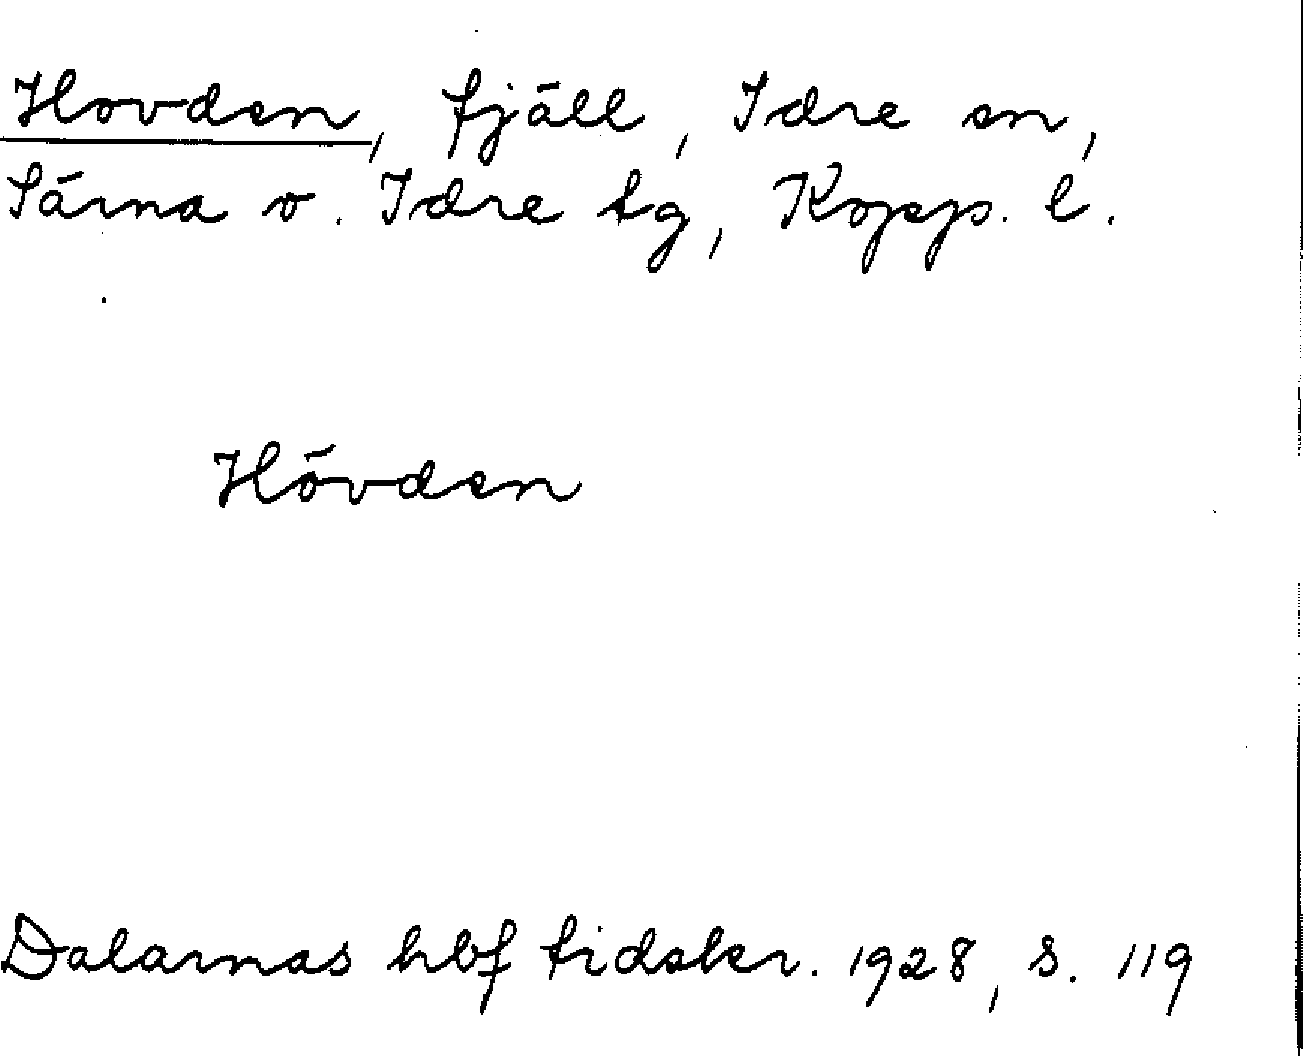 Hovden, fjäll, Idre sn,
Särna o. Idre tg, Kopp. l.
Hövden
Dalarnas hbf tidskr. 1928, s. 119